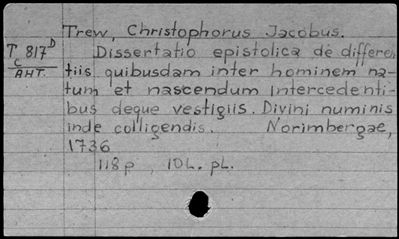 Trew, Christophorus Jacobus.
T 817D Dissertatio epistolica de differen
C tiis quibusdam inter hominem na-
AHT. tum et nascendum intercedenti-
bus deque vestigiis. Divini numinis
inde colligendis. Norimbergae,
1736
118 p, 10L. pL.